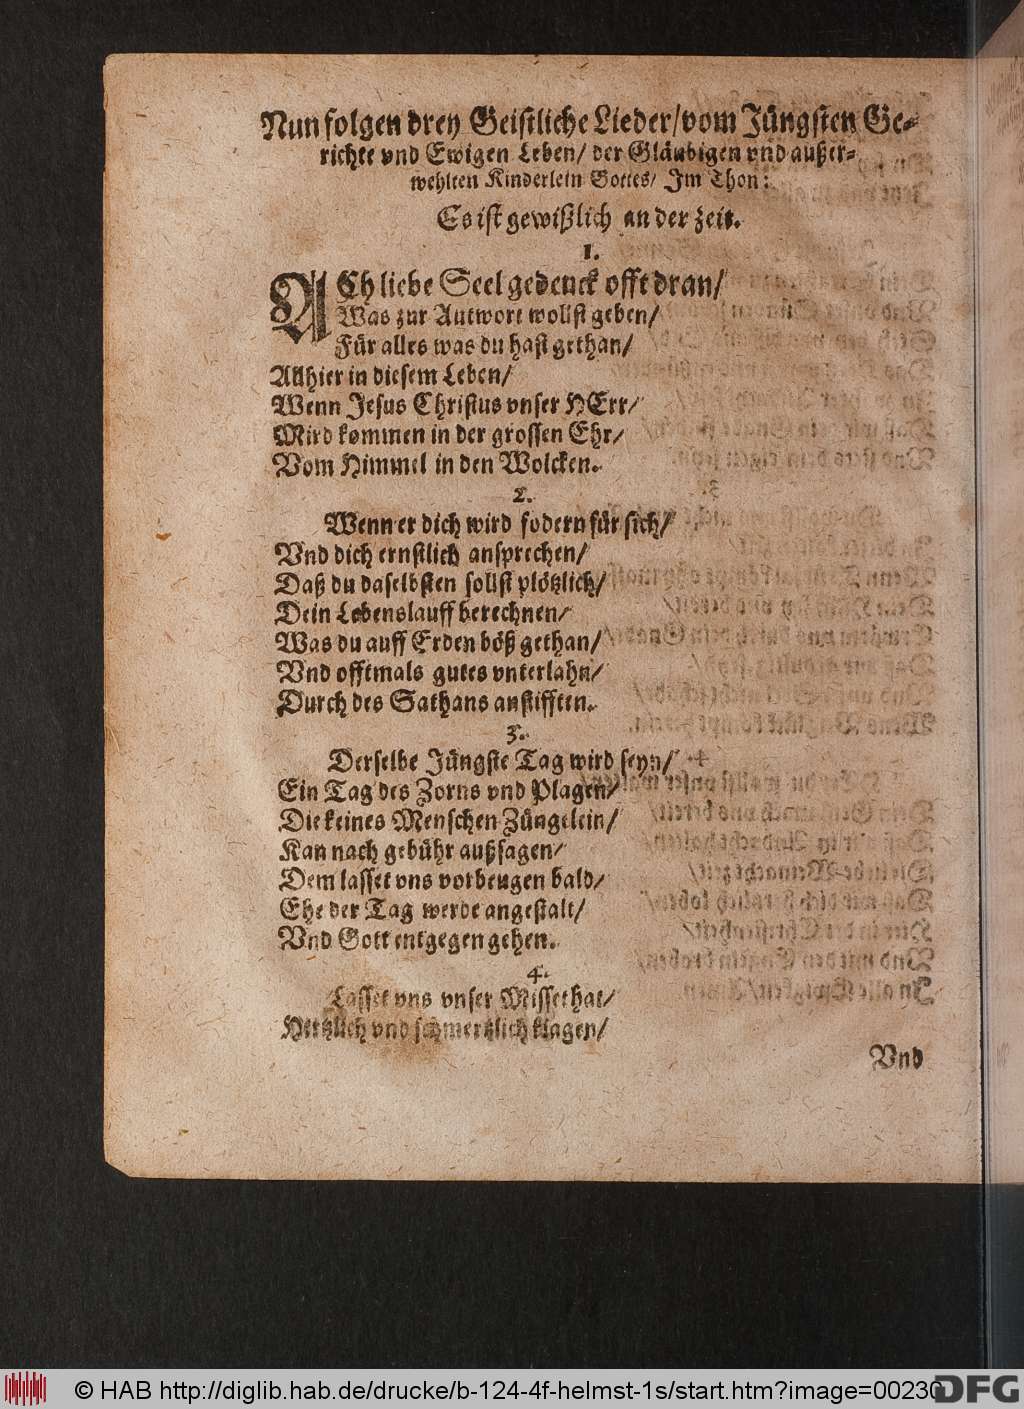 Nun folgen drey Geistliche Lieder/ vom Jüngsten Ge-
richte vnd Ewigen Leben/ der Gläubigen vnd außer-
wehlten Kinderlein Gottes/ Im Thon:
Es ist gewißlich an der zeit.
1.
ACh liebe Seel gedenck offt dran/
Was zur Antwort wollst geben/
Für alles was du hast gethan/
Allhier in diesem Leben/
Wenn Jesus Christus vnser HErr/
Wird kommen in der grossen Ehr/
Vom Himmel in den Wolcken.
2.
Wenn er dich wird fodern für sich/
Vnd dich ernstlich ansprechen/
Daß du daselbsten sollst plötzlich/
Dein Lebenslauff berechnen/
Was du auff Erden böß gethan/
Vnd offtmals gutes vnterlahn/
Durch des Sathans anstifften.
3.
Derselbe Jüngste Tag wird seyn/
Ein Tag des Zorns vnd Plagen/
Die keines Menschen Züngelein/
Kan nach gebühr außsagen/
Dem lasset vns vorbeugen bald/
Ehe der Tag werde angestalt/
Vnd Gott entgegen gehen.
4.
Lasset vns vnser Missethat/
Hertzlich vnd schmertzlich klagen/
Vnd
© HAB http://diglib.hab.de/drucke/b-124-4f-helmst-1s/start.htm?image=00230
DFG